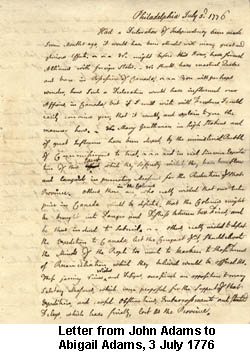 Philadelphia July 3d. 1776
Had a Declaration of Independency been made
seven Months ago, it would have been attended with many great and
glorious Effects
might before this Hour, have formed
Alliances with foreign States. We should have mastered Quebec
and been in Possession of Canada
wonder, how such a Declaration would have influenced our
Affairs in Canada, but if I could write with Freedom I could
easily convince you, that it would, and explain to you the
manner how. Many Gentlemen in high Stations and
of great Influence have been duped, by the ministerial Bubble
of Commissioners to treat
and Languid in promoting Measures for the Reduction of that
Province. Others there are in the Colonies who really wished that our Enter-
prise in Canada would be defeated, that the Colonies might
be brought into Danger and Distress between two Fires, and
be thus induced to submit. Others really wished to defeat
the Expedition to Canada, lest the Conquest of it, should elevate
the Minds of the People too much to hearken to those Terms
of Reconciliation which they believed would be offered Us.
These jarring Views, Wishes and Designs, occasioned an opposition to many
salutary Measures, which were proposed for the Support of that
Expedition, and caused Obstructions, Embarrassments and studied
Delays, which have finally, lost Us the Province.
Letter from John Adams to
Abigail Adams, 3 July 1776